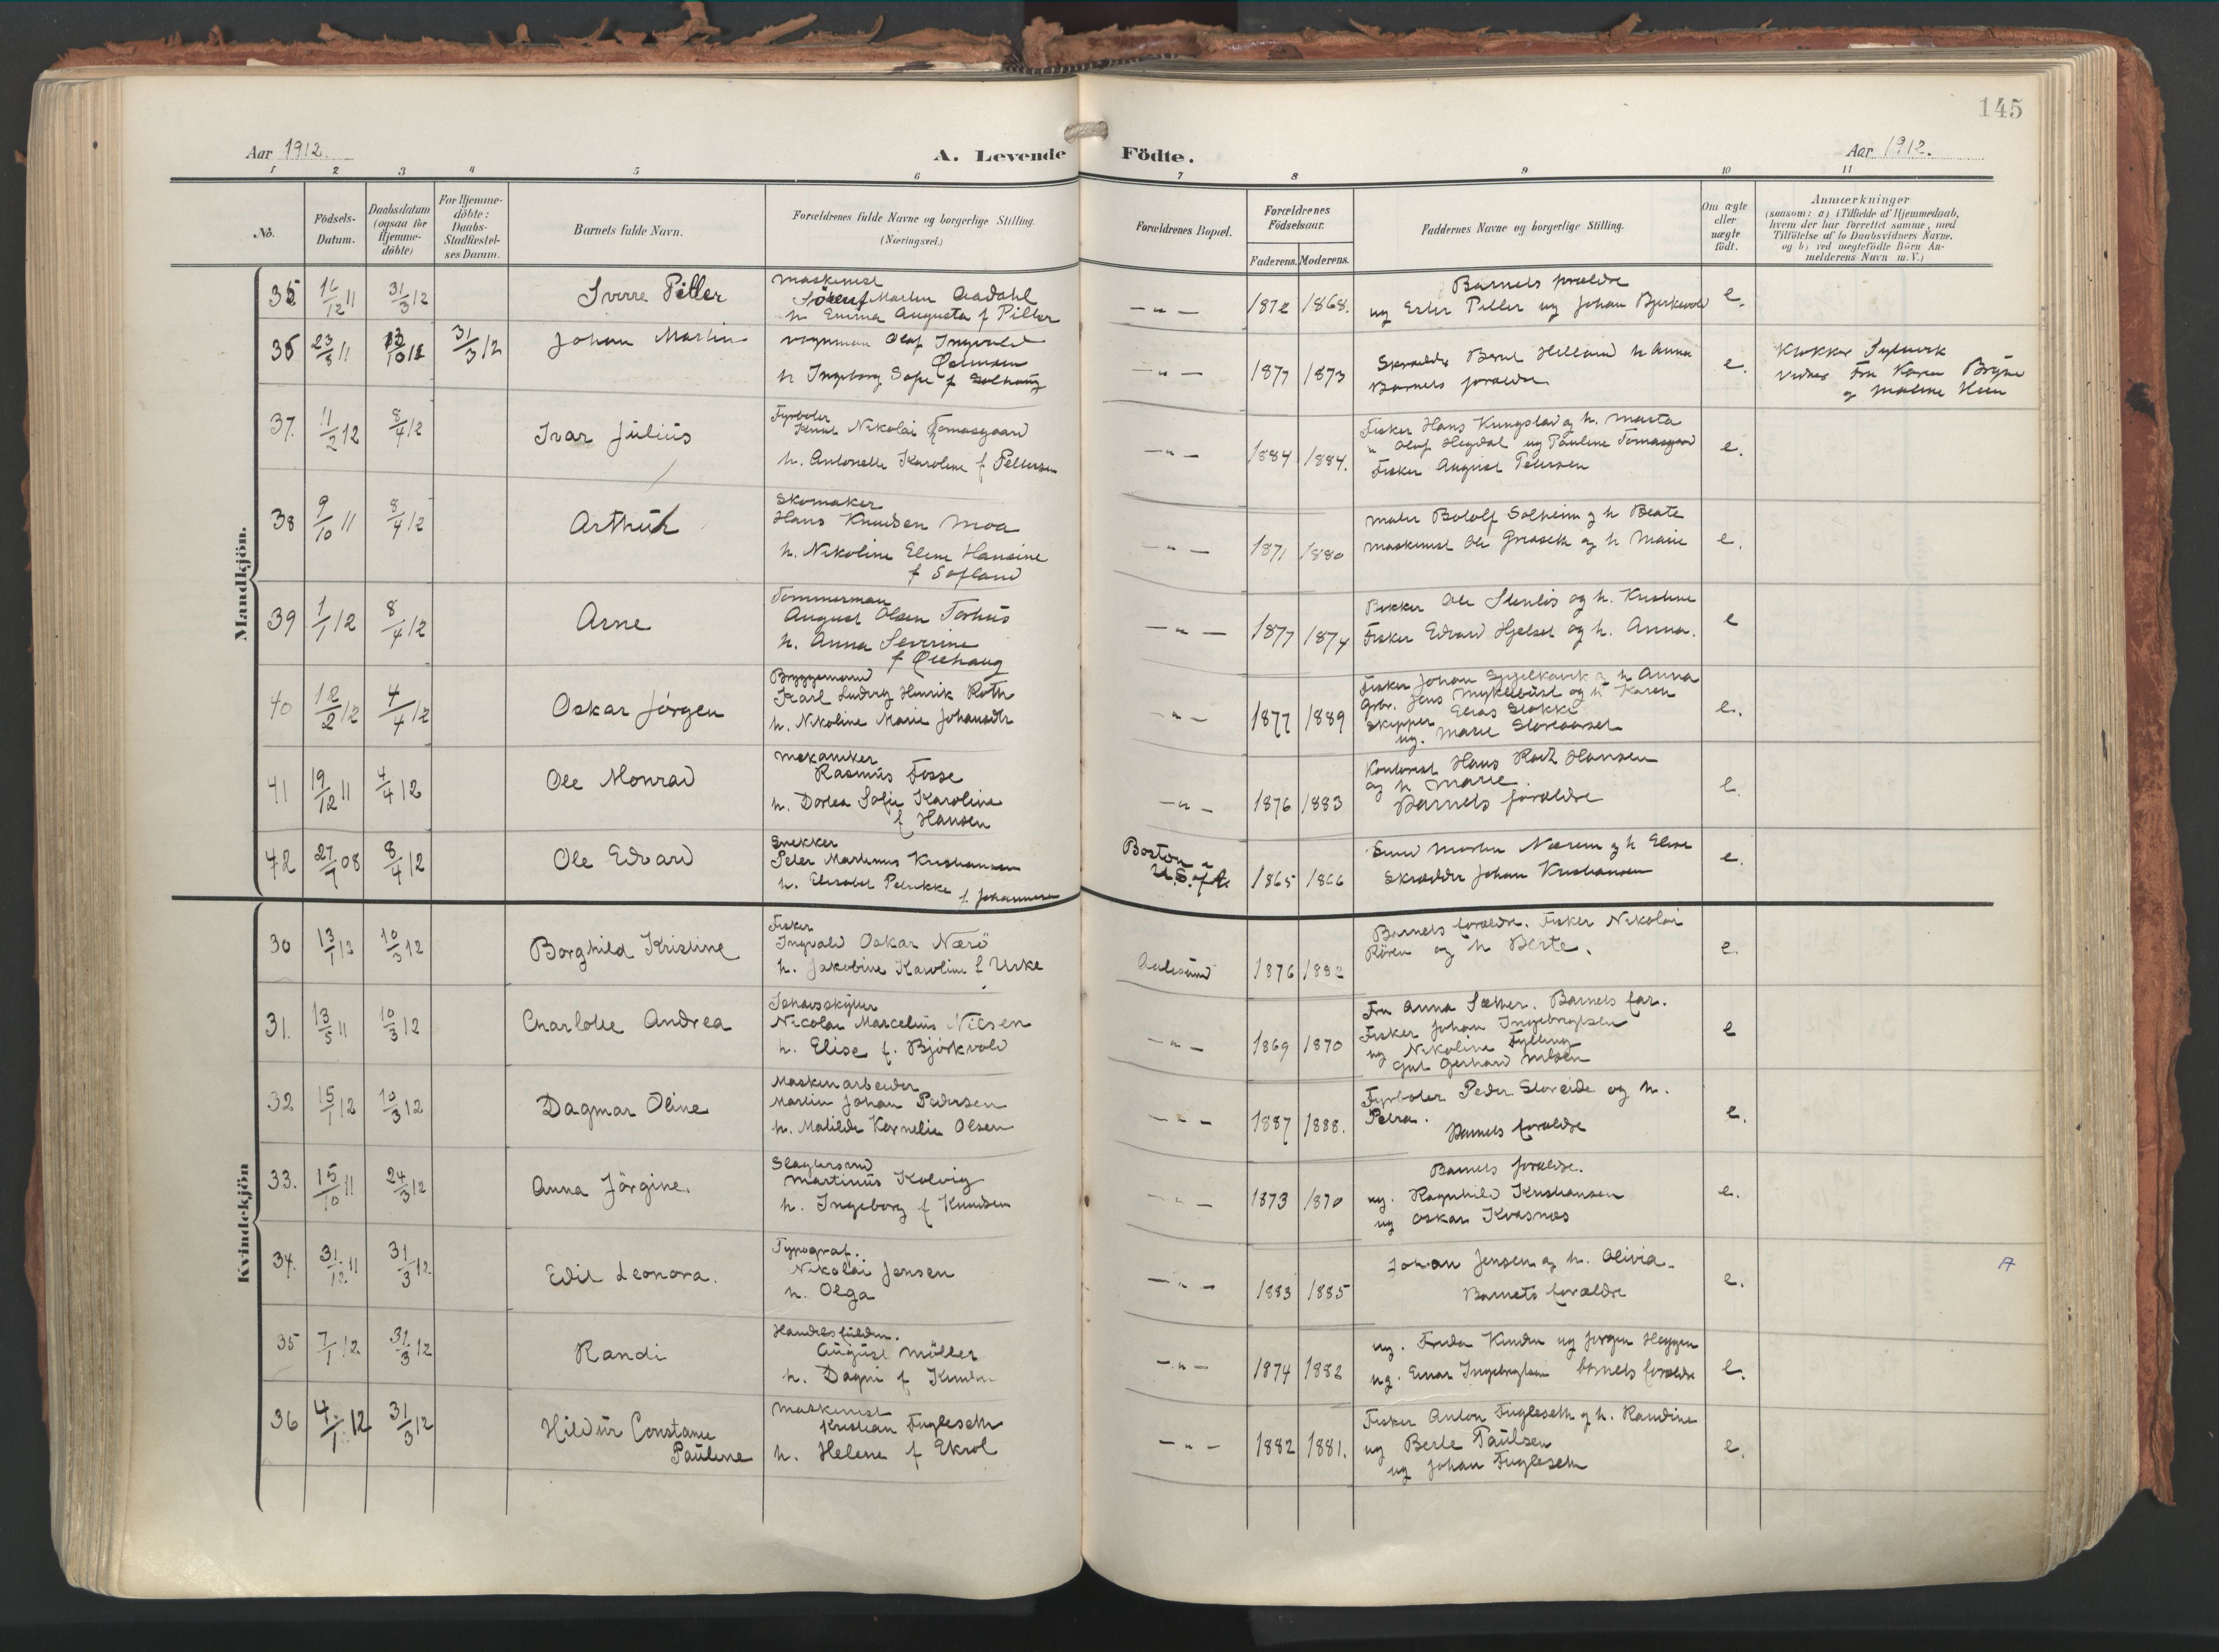 145
Aar 1912.
A. Levende Födte.
Aar 1912.
1 2 3 4 5 6 7 8 9 10 11
No.
Födsels-
Datum.
Daabsdatum
(ogsaa for
Hjemme-
döbte)
For Hjemme-
döbte:
Daabs-
Stadfæstel-
ses Datum.
Barnets fulde Navn.
Forældrenes fulde Navne og borgerlige Stilling.
(Næringsvei.)
Forældrenes Bopæl.
Forældrenes
Födselsaar.
Faderens. Moderens.
Faddernes Navne og borgerlige Stilling.
Om ægte
eller
uægte
födt.
Anmærkninger
(saasom: a) i Tilfælde af Hjemmedaab,
hvem der har forrettet samme, med
Tilföielse af to Daabsvidners Navne,
og b) ved uægtefödte Börn An-
melderens Navn m. V.)
Mandkjön.
35 31/3 12 Sverre Piller
Maskinist
Martin Aadahl
h. Emma Augusta f Piller
— " — 1872 1868.
Barnets forældre
ug Ester Piller ug Johan Bjerkevold
e.
36 23/3 11 31/3 12 Johan Martin
Olaf Ingvald
h. Ingeborg Sofie f Solhaug
— " — 1877 1873
Skrædder Bernt Helland h Anna
Barnets forældre
e.
Klokker
Vidner Fru Karen
og Malene Heen
37. 11/2 12 8/4 12 Ivar Julius
Fyrbøter
Knut Nikolai Tomasgaard
h. Antonette Karoline f Pettersen
— " — 1884 1884.
Fisker Hans Kungslav og h. Marta
" Olaf Hegdal ug Pauline Tomasgaard
Fisker August Petersen
e.
38 9/10 11 8/4 12 Arthur
Skomaker
Hans Knudsen Moa
h. Nikoline Elene Hansine
f Sefland
— " — 1871 1880
Maler Botolf Solheim og h Beate
Maskinist Ole Graseth og h Marie
e.
39 1/1 12 8/4 12 Arne
Tømmerman
August Olsen Torhus
h. Anna Severine
f Øiehaug
— " — 1877 1874
Bøkker Ole Stenlis og h. Kristine
Fisker Edvard Hjelset og h. Anna.
e
40 12/2 12 4/4 12 Oskar Jørgen
Bryggemand
Karl Ludvig Henrik Roth
h. Nikoline Marie Johansdtr
— " — 1877 1889
Fisker Johan Spjelkavik og h Anna
Grbr. Jens Myklebust og h Karen
Skipper Elias Slokke
ug. Marie
e.
41 19/12 11 4/4 12 Ole Monrad
Mekaniker
Rasmus Fosse
h. Dortea Sofie Karoline
f Hansen
— " — 1876 1883
Kontorist Hans Hansen
og h Marie.
Barnets forældre
e.
42 27/7 08 8/4 12 Ole Edvard
Snekker
Peter Martinus Kristiansen
h. Elisabet Petrikke f. Johannesen
Boston
U.S. of A. 1865 1866
Smed Martin Nærem og h Elise
Skrædder Johan Kristiansen
e.
Kvindekjön
30 13/1 12 10/3 12 Borghild Kristine
Fisker
Ingvald Oskar Nærø
h. Jakobine Karoline f Urke
Aalesund 1876 1882
Barnets forældre. Fisker Nikolai
Rören og h Berte.
e.
31. 13/5 11 10/3 12 Charlotte Andrea
Ishavsskytter
Nicolai Marcelius Nilsen
h. Elise f. Björkvold
— " — 1869 1870
Fru Anna Sæther. Barnets far.
Fisker Johan Ingebrigtsen
ug Nikoline Fylling
Gut Gerhard Nilsen
e
32 15/1 12 10/3 12 Dagmar Oline
Maskinarbeider
Martin Johan Pedersen
h. Matilde Kornelie Olsen
— " — 1887 1888.
Fyrbøter Peder Storeide og h.
Petra.
Barnets forældre
e.
33. 15/10 11 24/3 12 Anna Jörgine.
Slagtersvend
Martinus Kolvig
h. Ingeborg f Knudsen
— " — 1873 1870
Barnets forældre.
ug. Ragnhild Kristiansen
ug Oskar Kvasnes
e.
34. 31/12 11 31/3 12 Edit Leonora.
Typograf.
Nikolai Jensen
h. Olga
— " — 1883 1885
Johan Jensen og h. Olivia.
Barnets forældre
e.
35 7/1 12 31/3 12 Randi
Handelsfuldm.
August Müller
h. Dagni f
— " — 1874 1882
ug. Frida ug Jørgen Heggen
ug. Einar Ingebrigtsen barnets forældre
e.
36 4/1 12 31/3 12 Hildur Constance
Pauline
Maskinist
Kristian Fugleseth
h. Helene f Ekrol
— " — 1882 1881.
Fisker Anton Fugleseth og h. Randine
ug Berte Paulsen
ug Johan Fugleseth
e.